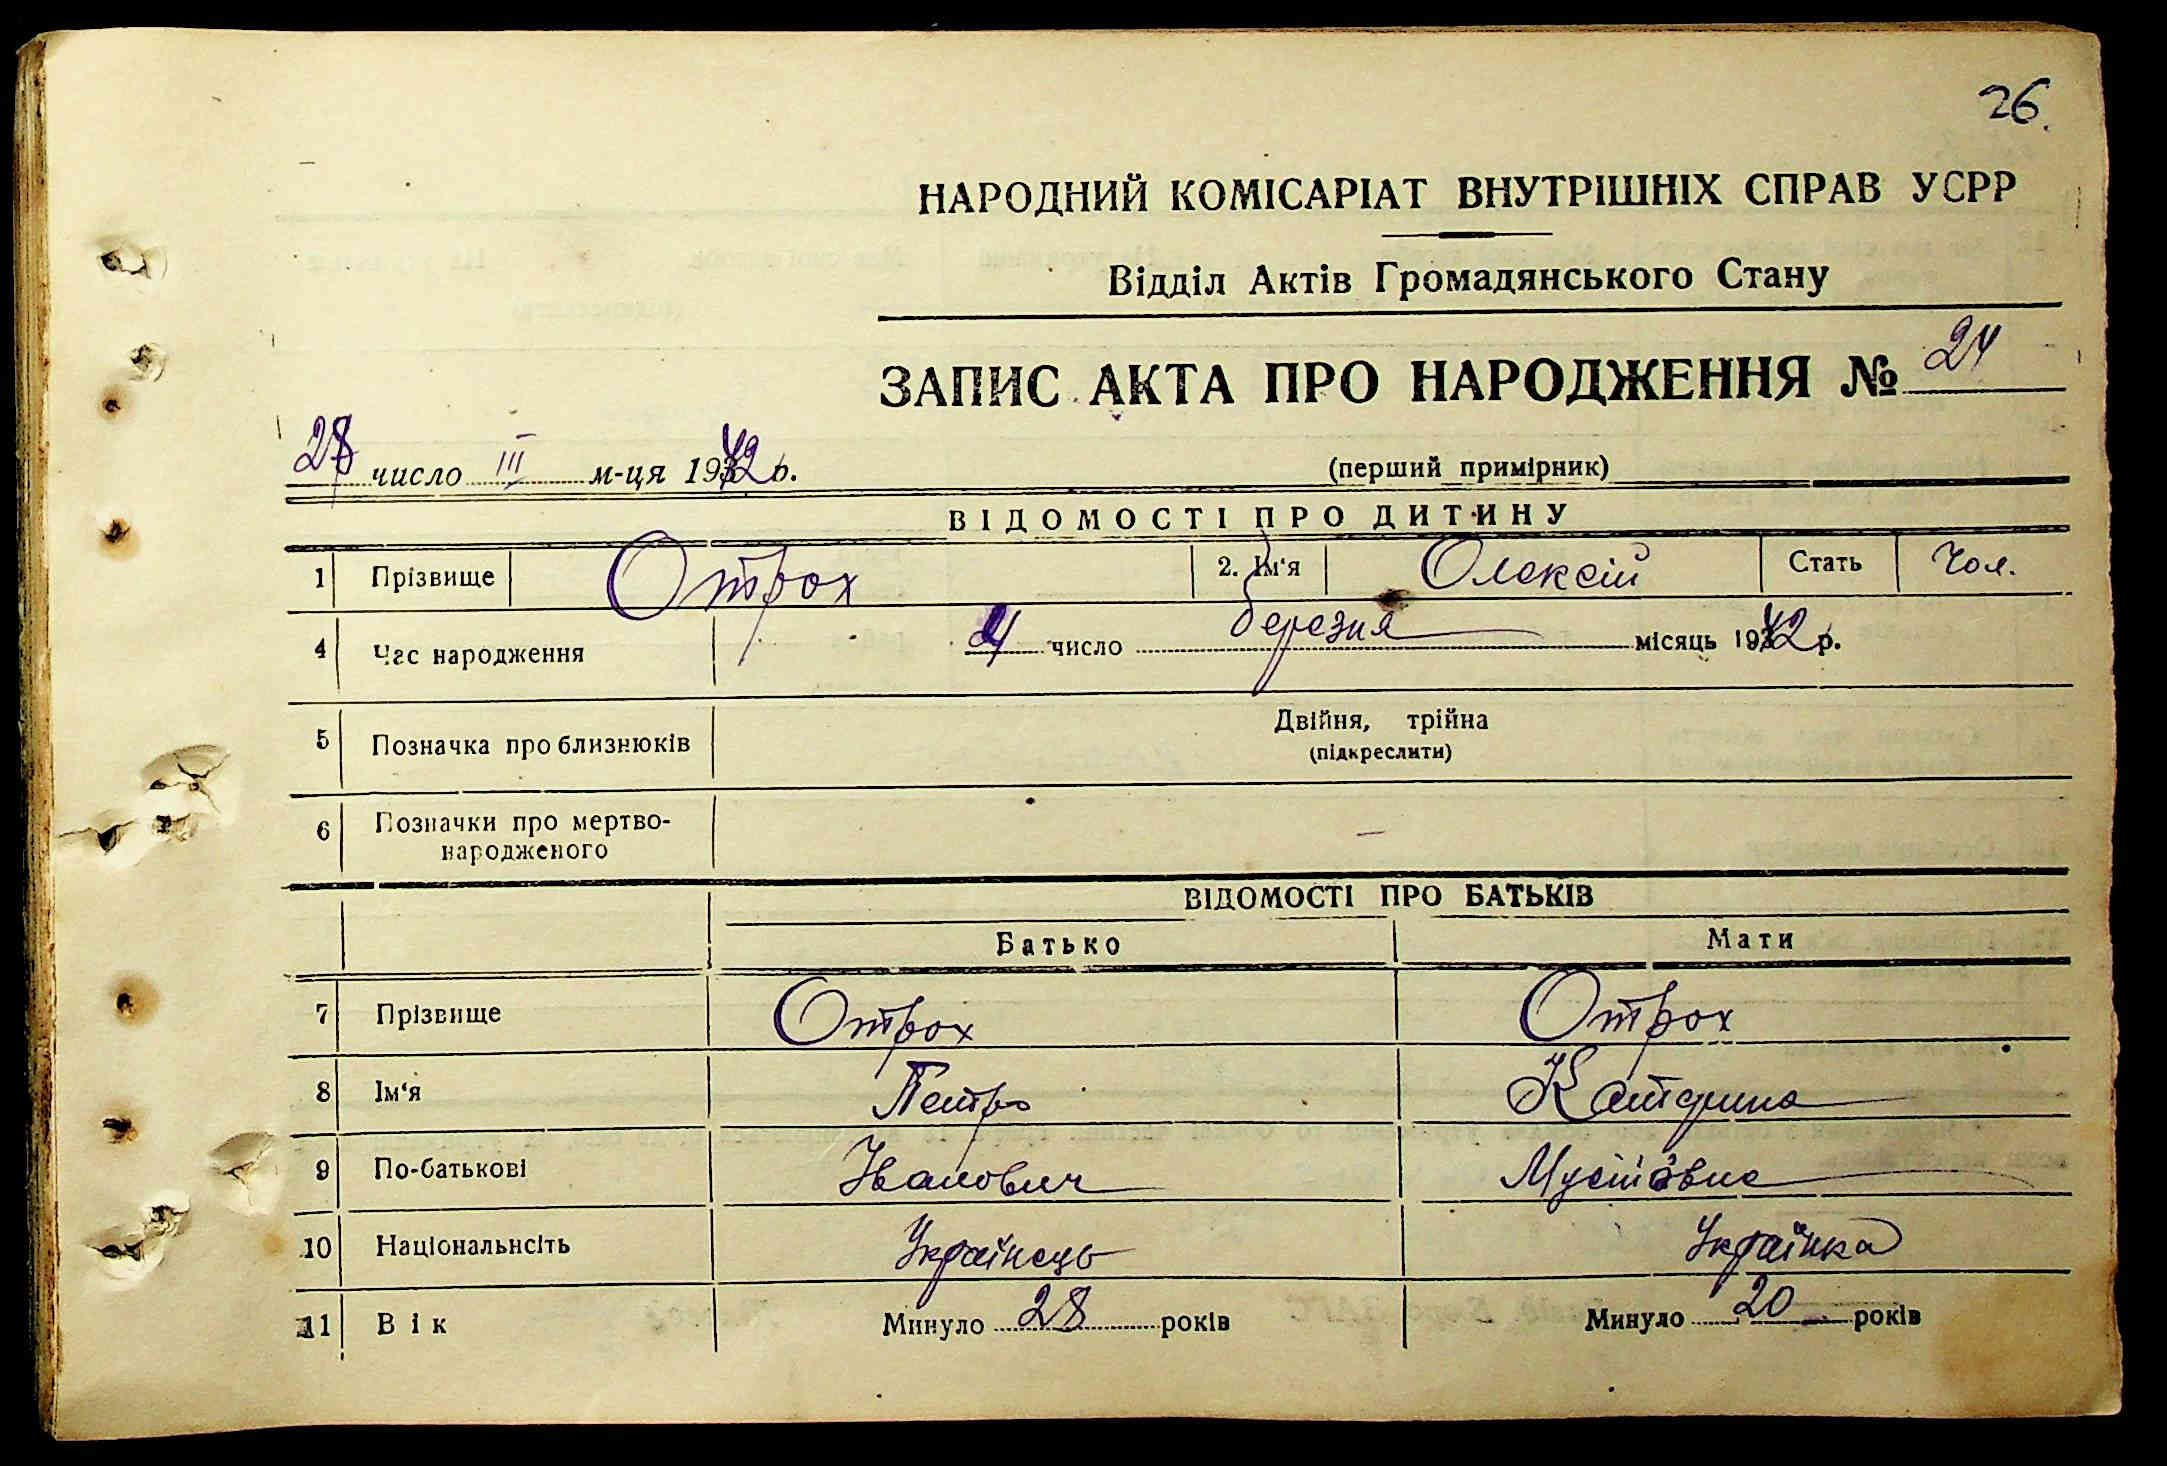 26.
НАРОДНИЙ КОМІСАРІАТ ВНУТРІШНІХ СПРАВ УСРР
Відділ Актів Громадянського Стану
ЗАПИС АКТА ПРО НАРОДЖЕННЯ № 24
число III м-ця 1942 р. (перший примірник)
ВІДОМОСТІ ПРО ДИТИНУ
1 Прізвище Отрох 2. Ім'я Олексій Стать Чол.
4 Час народження число березня місяць 1942 р.
5 Позначка про близнюків Двійня, трійна
(підкреслити)
6 Позначки про мертво-
народженого —
ВІДОМОСТІ ПРО БАТЬКІВ
Батько Мати
7 Прізвище Отрох Отрох
8 Ім'я Петро Катерина
9 По-батькові Іванович
10 Національнсіть Українець Українка
11 Вік Минуло 28 років Минуло 20 років